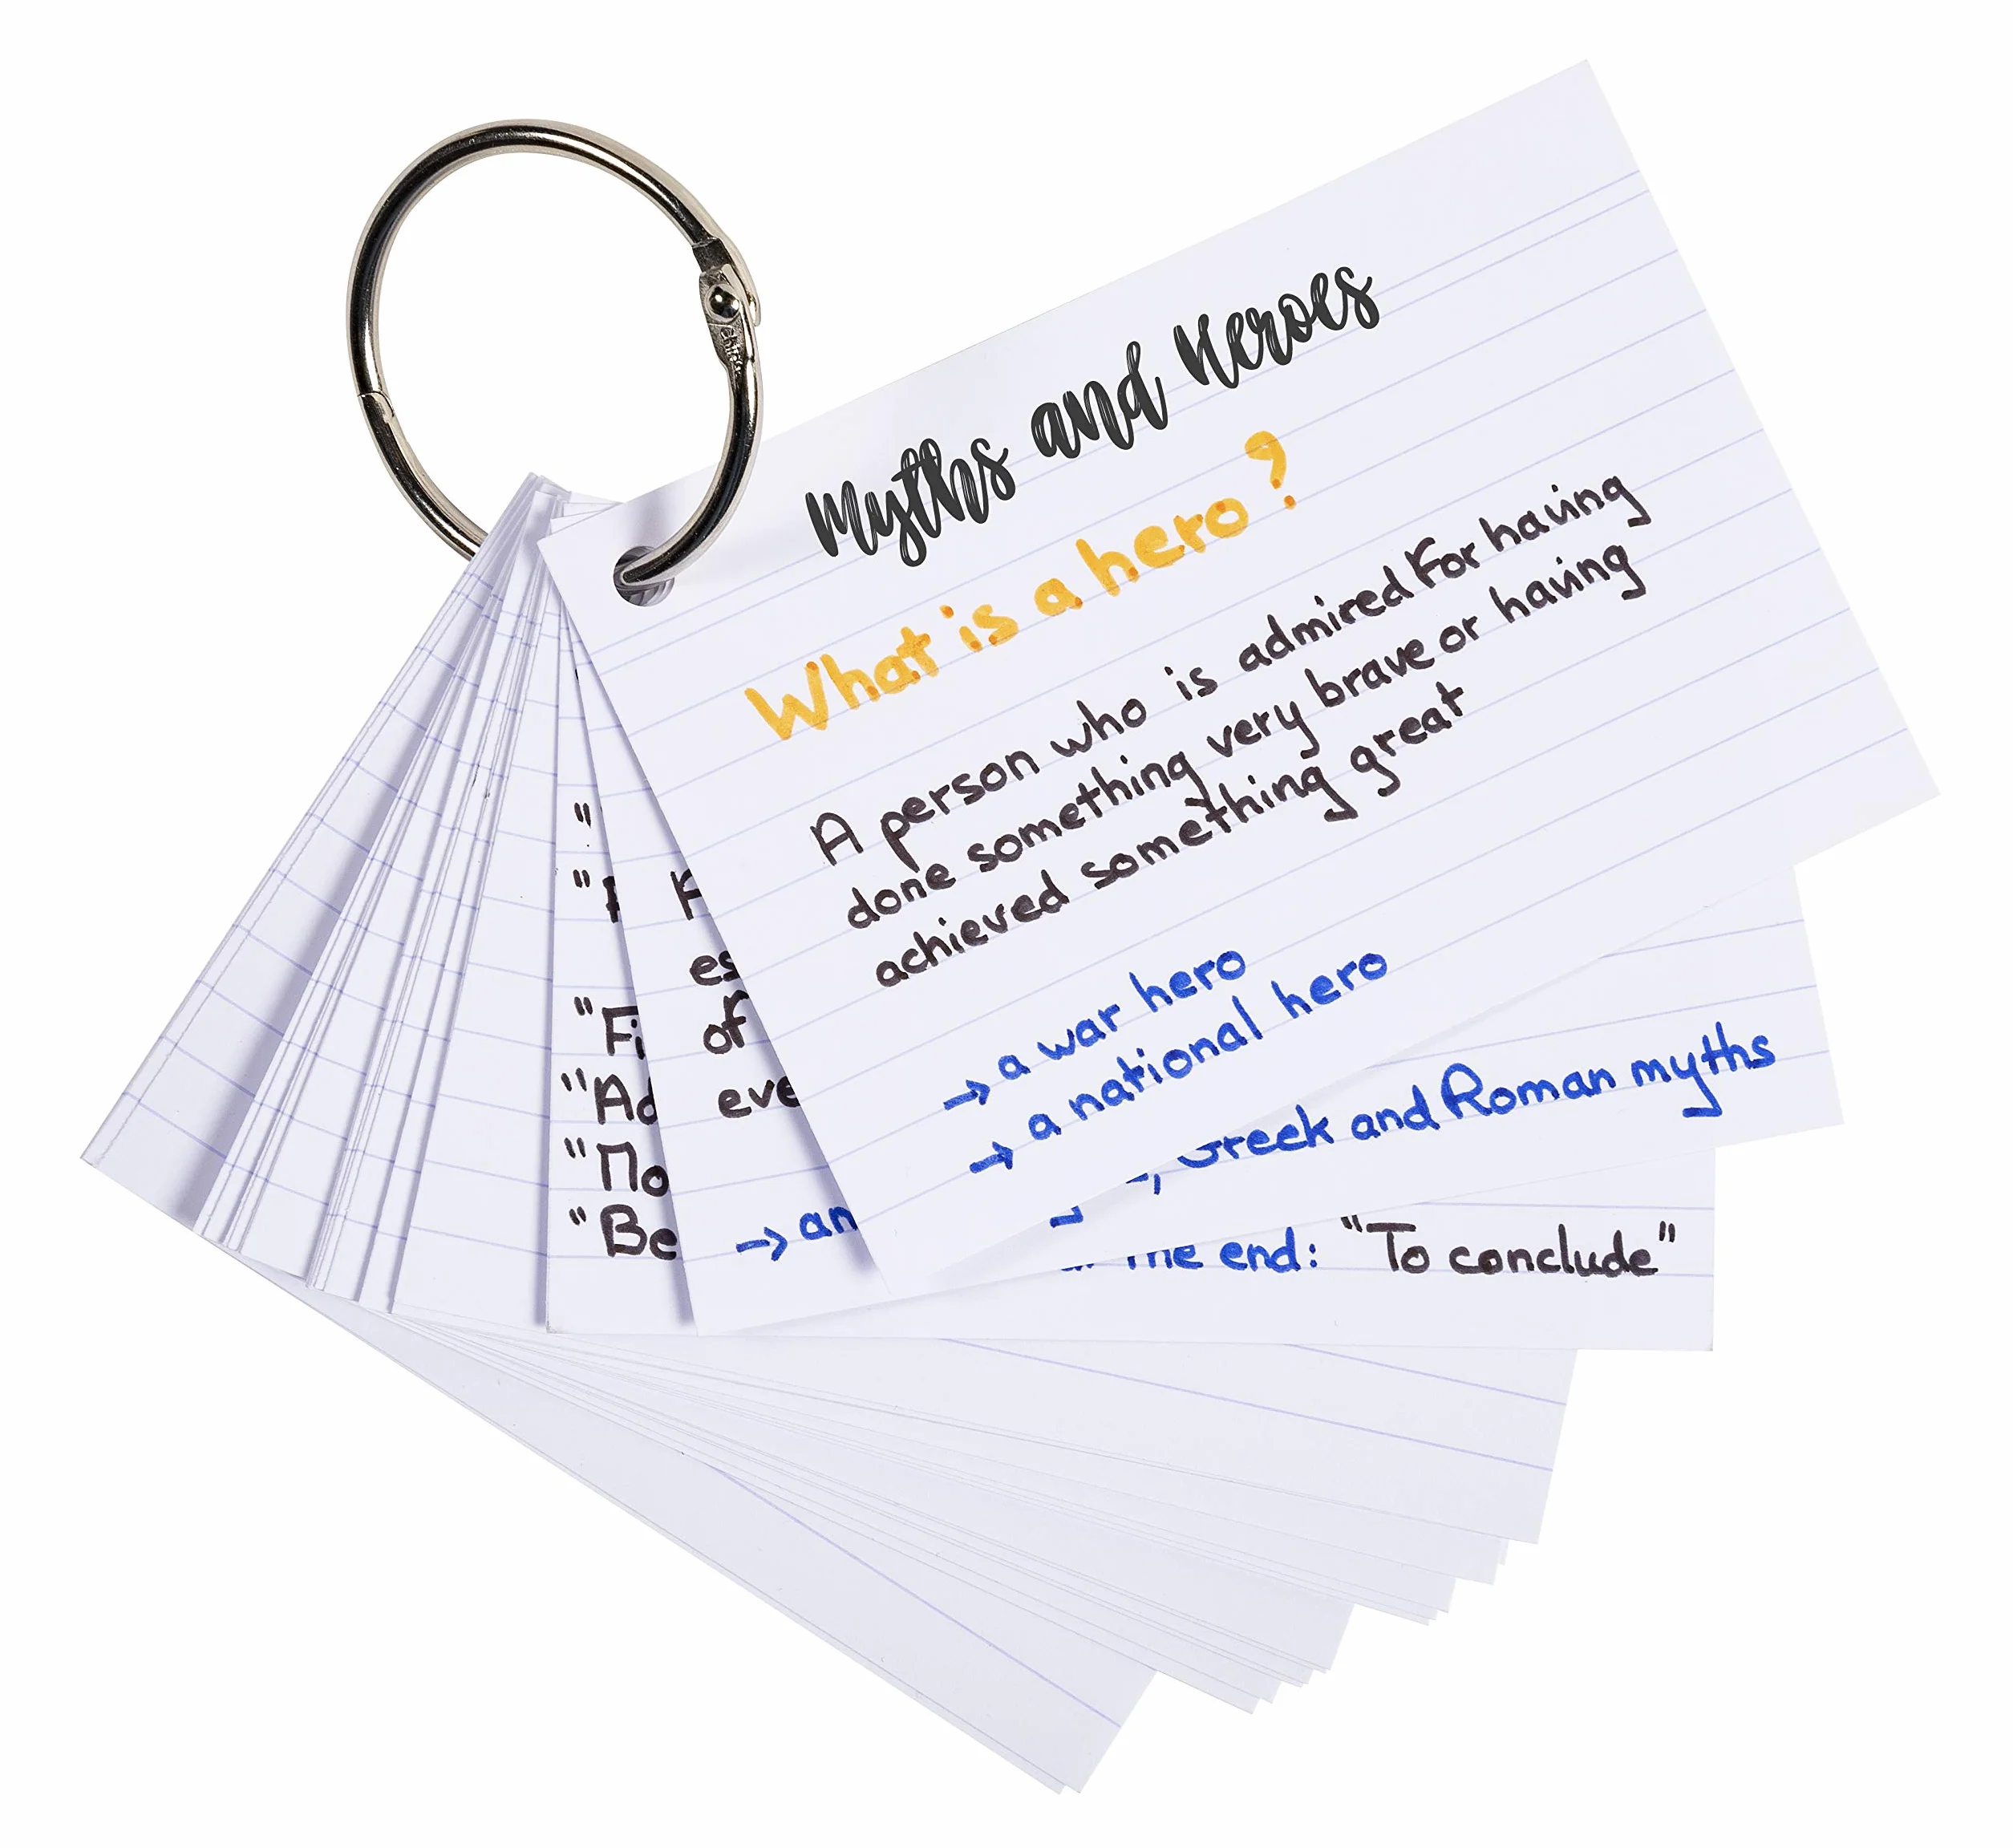 Myths and Heroes
What is a hero?
A person who is admired For having
done something very brave or having
achieved something great
→ a war hero
→ a national hero
es
of
eve
→ an
Greek and Roman myths
"
"
"Fi
"Ad
"No
"Be
the end: "To conclude"